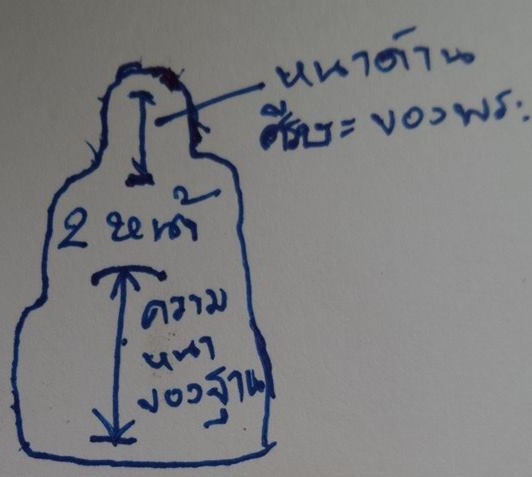 หนาด้าน
ศีรษะ ของพระ
2 หน้า
ความ
หนา
ของฐาน